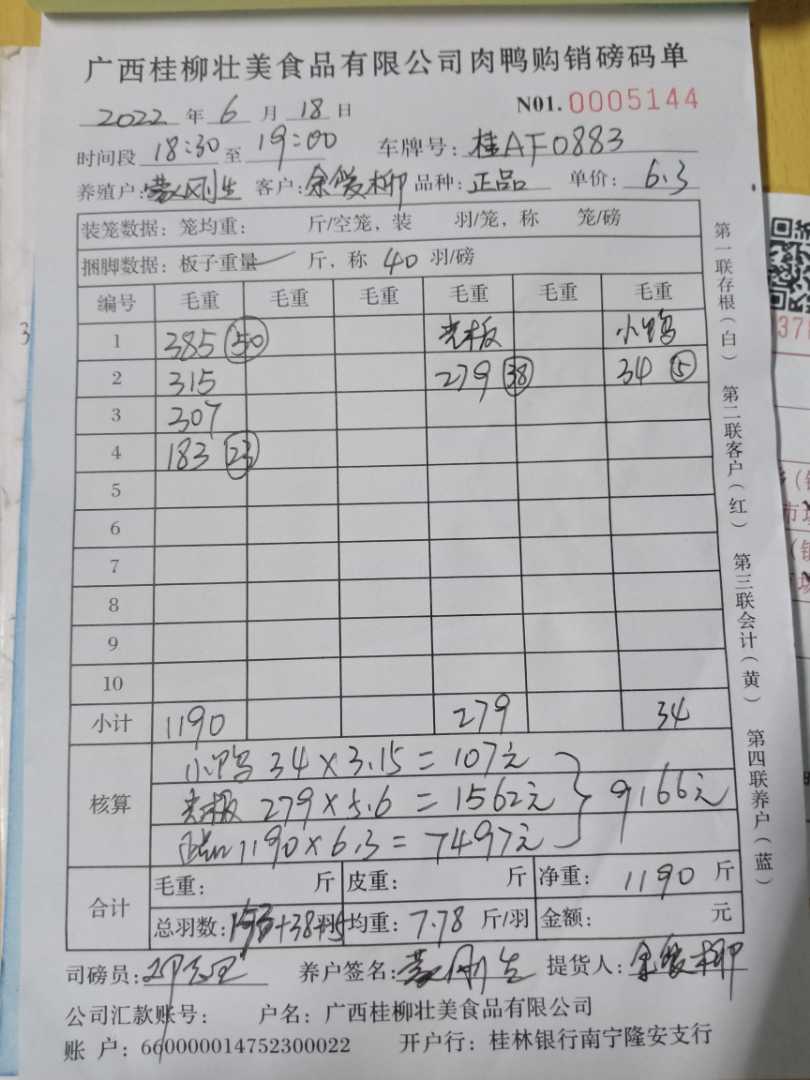 广西桂柳壮美食品有限公司肉鸭购销磅码单
2022 年 6 月 18 日 N01. 0005144
时间段 18:30 至 19:00 车牌号: 桂AF0883
养殖户: 刚生 客户: 余 柳 品种: 正品 单价: 6.3
装笼数据: 笼均重: 斤/空笼, 装 羽/笼, 称 笼/磅
捆脚数据: 板子重量 斤, 称 40 羽/磅
编号 毛重 毛重 毛重 毛重 毛重 毛重
1 385 50 光板 小鸭
2 315 279 38 34 5
3 307
4 183 23
5
6
7
8
9
10
小计 1190 279 34
核算
小鸭 34×3.15=107元
光板 279×5.6=1562元
正品 1190×6.3=7497元
9166元
合计
毛重: 斤 皮重: 斤 净重: 1190 斤
总羽数: +38+5 均重: 7.78 斤/羽 金额: 元
司磅员: 养户签名: 刚生 提货人: 余 柳
公司汇款账号: 户名: 广西桂柳壮美食品有限公司
账 户: 660000014752300022 开户行: 桂林银行南宁隆安支行
第一联存根(白) 第二联客户(红) 第三联会计(黄) 第四联养户(蓝)